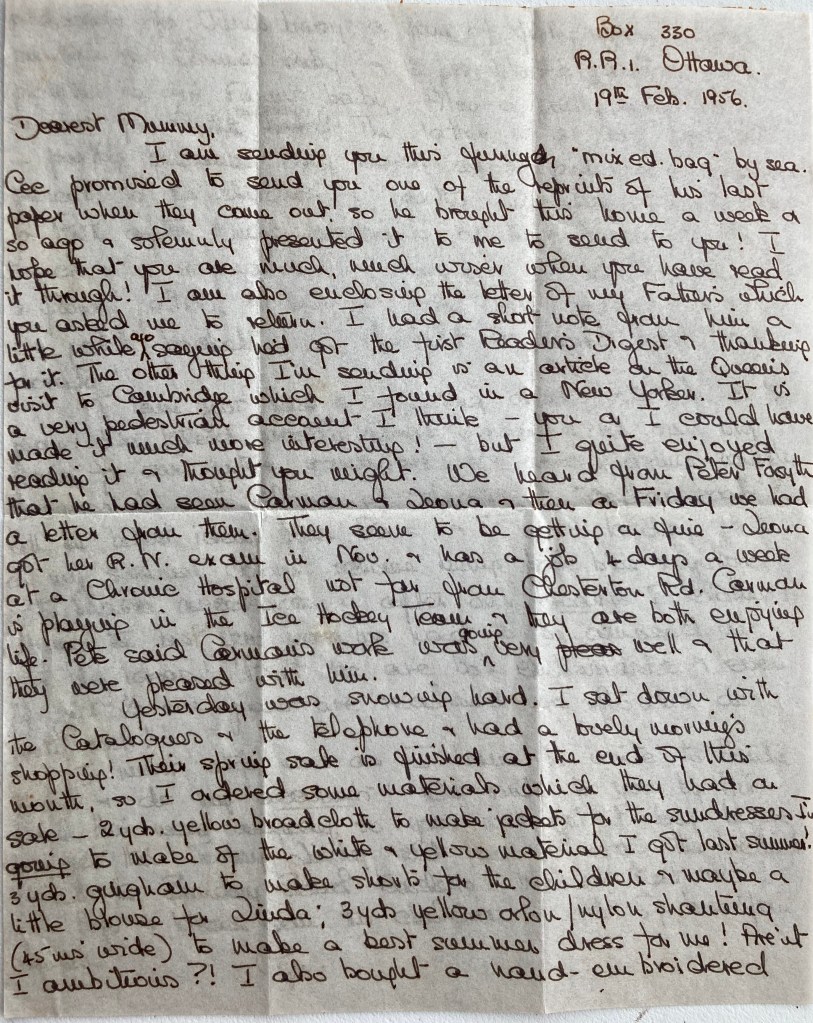 Box 330
R.R.1. Ottawa.
19th Feb. 1956.
Dearest Mummy,
I am sending you this funny "mixed bag" by sea.
Cec promised to send you one of the reprints of his last
paper when they came out, so he brought this home a week or
so ago & solemnly presented it to me to send to you! I
hope that you are much, much wiser when you have read
it through! I am also enclosing the letter of my Father's which
you asked me to return. I had a short note from him a
little while ago saying he'd got the first Reader's Digest & thanking
for it. The other thing I'm sending is an article on the Queen's
visit to Cambridge which I found in a New Yorker. It is
a very pedestrian account I think – you or I could have
made it much more interesting! – but I quite enjoyed
reading it & thought you might. We heard from Peter Forsyth
that he had seen Carman & Leona & then on Friday we had
a letter from them. They seem to be getting on fine – Leona
got her R.N. exam in Nov. & has a job 4 days a week
at a Chronic Hospital not far from Chesterton Rd. Carman
is playing in the Ice Hockey Team & they are both enjoying
life. Pete said Carman's work was going very well & that
they were pleased with him.
Yesterday was snowing hard. I sat down with
the Catalogues & the telephone & had a lovely morning's
shopping! Their spring sale is finished at the end of this
month, so I ordered some materials which they had on
sale – 2 yds. yellow broadcloth to make jackets for the sundresses I'm
going to make of the white & yellow material I got last summer!
3 yds. gingham to make shorts for the children & maybe a
little blouse for Linda; 3 yds yellow orlon/nylon shantung
(45 ins wide) to make a best summer dress for me! Are'nt
I ambitious?! I also bought a hand-embroidered